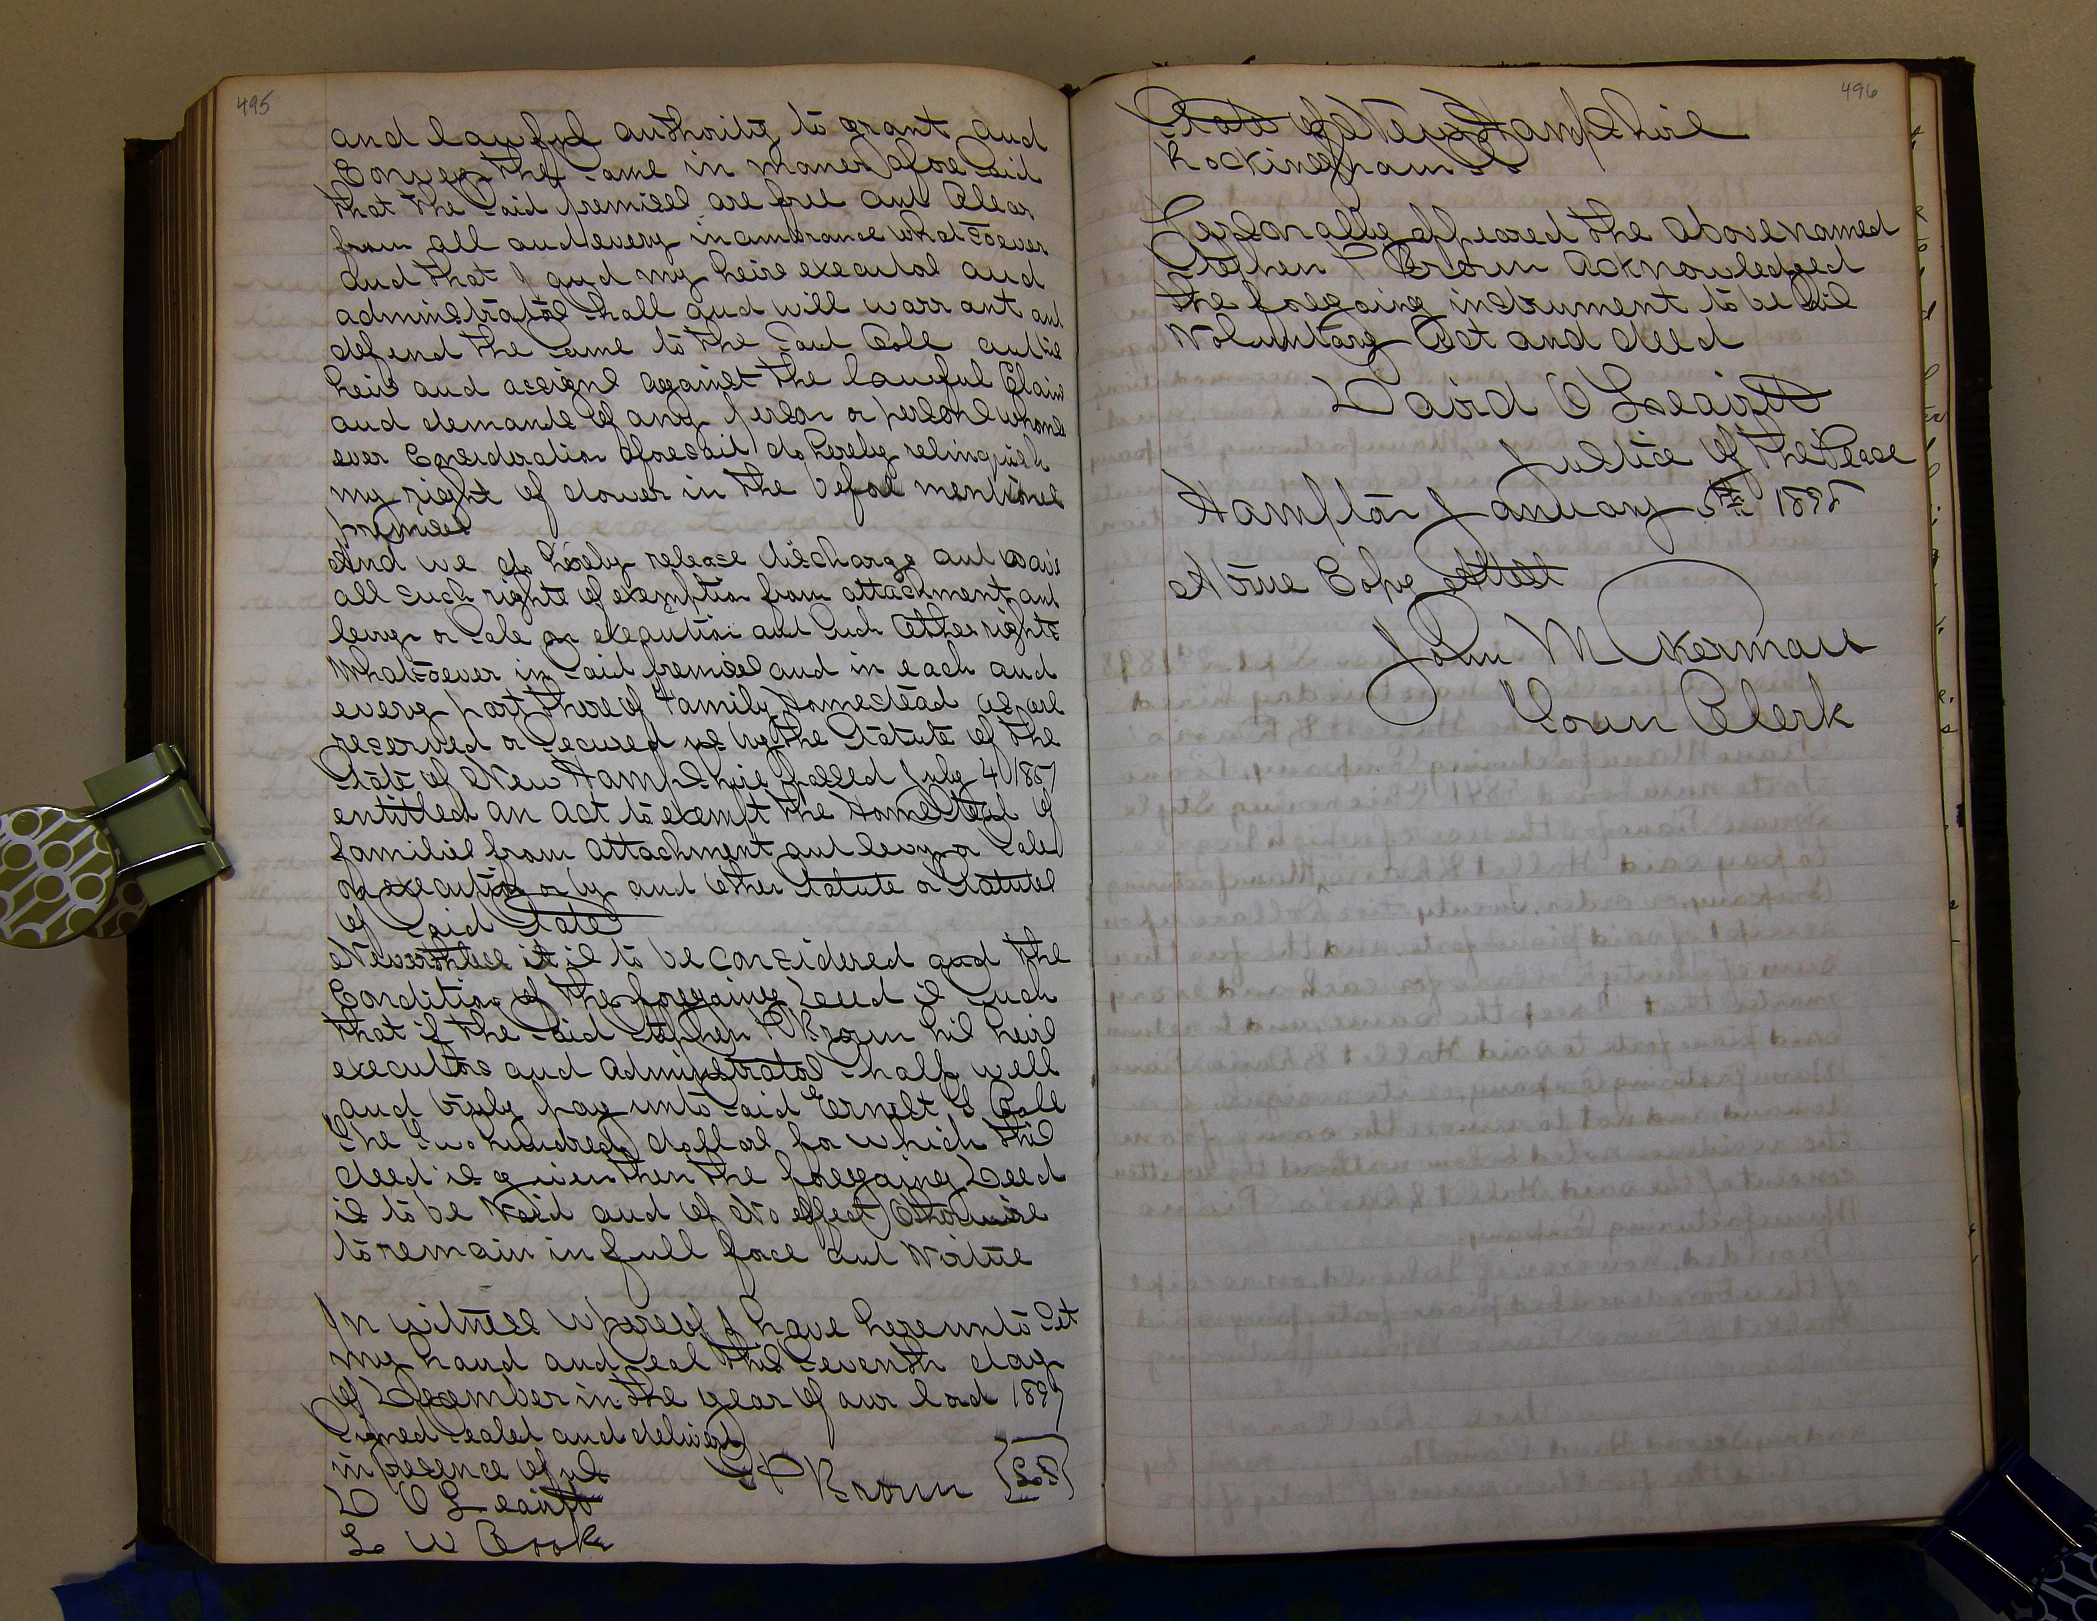 495
and lawful authority to grant and
Convey the same in maner afore said
that the said premises are free and Clear
from all and every incumbrance whatsoever
and that I and my heirs executors and
administrators shall and will warrant and
defend the same to the said Cole and his
heirs and assigns against the lawful Claims
and demands of any person or persons whoms
ever Consideration aforesaid do hereby relinquish
my right of dower in the before mentioned
premises
And we do hereby release discharge and waive
all such rights of exemption from attachment and
levy or sale on execution and such other rights
whatsoever in said premises and in each and
every part thereof Family Homestead as are
reserved or secured us by the Statute of the
State of New Hampshire passed July 4 1851
entitled an act to exempt the Homestead of
families from attachment and levy or sale
on execution or by and other statute or statutes
of said State
Nevertheless it is to be considered and the
Condition of the foregoing Deed is such
that if the said Stephen P Brown his heirs
executors and administrators shall well
and truly pay unto said Ernest G Cole
the two hundred dollars for which this
deed is given then the foregoing Deed
is to be Void and of No effect Otherwise
to remain in full force and Virtue
In witness whereof I have hereunto set
my hand and seal this seventh day
of December in the year of our lord 1897
Signed sealed and delivered
in presence of us
S P Brown {L.S}
D O Leavitt
L W Brooke
496
State of New Hampshire
Rockingham SS
Personally appeared the above named
Stephen P Brown acknowledged
the foregoing instrument to be his
Voluntary Act and deed
David O Leavitt
Justice of the Peace
Hampton January 5th 1898
A true Copy Attest
John M Akerman
Town Clerk